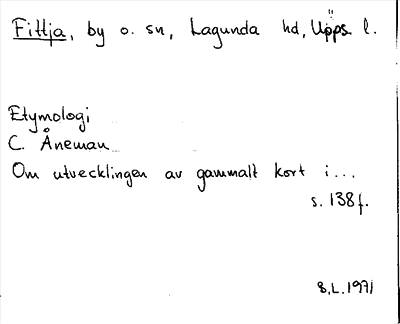 Fittja, by o. sn, Lagunda hd, Upps. l.
Etymologi
C. Åneman
Om utvecklingen av gammalt kort i...
s. 138 f.
B.L. 1971